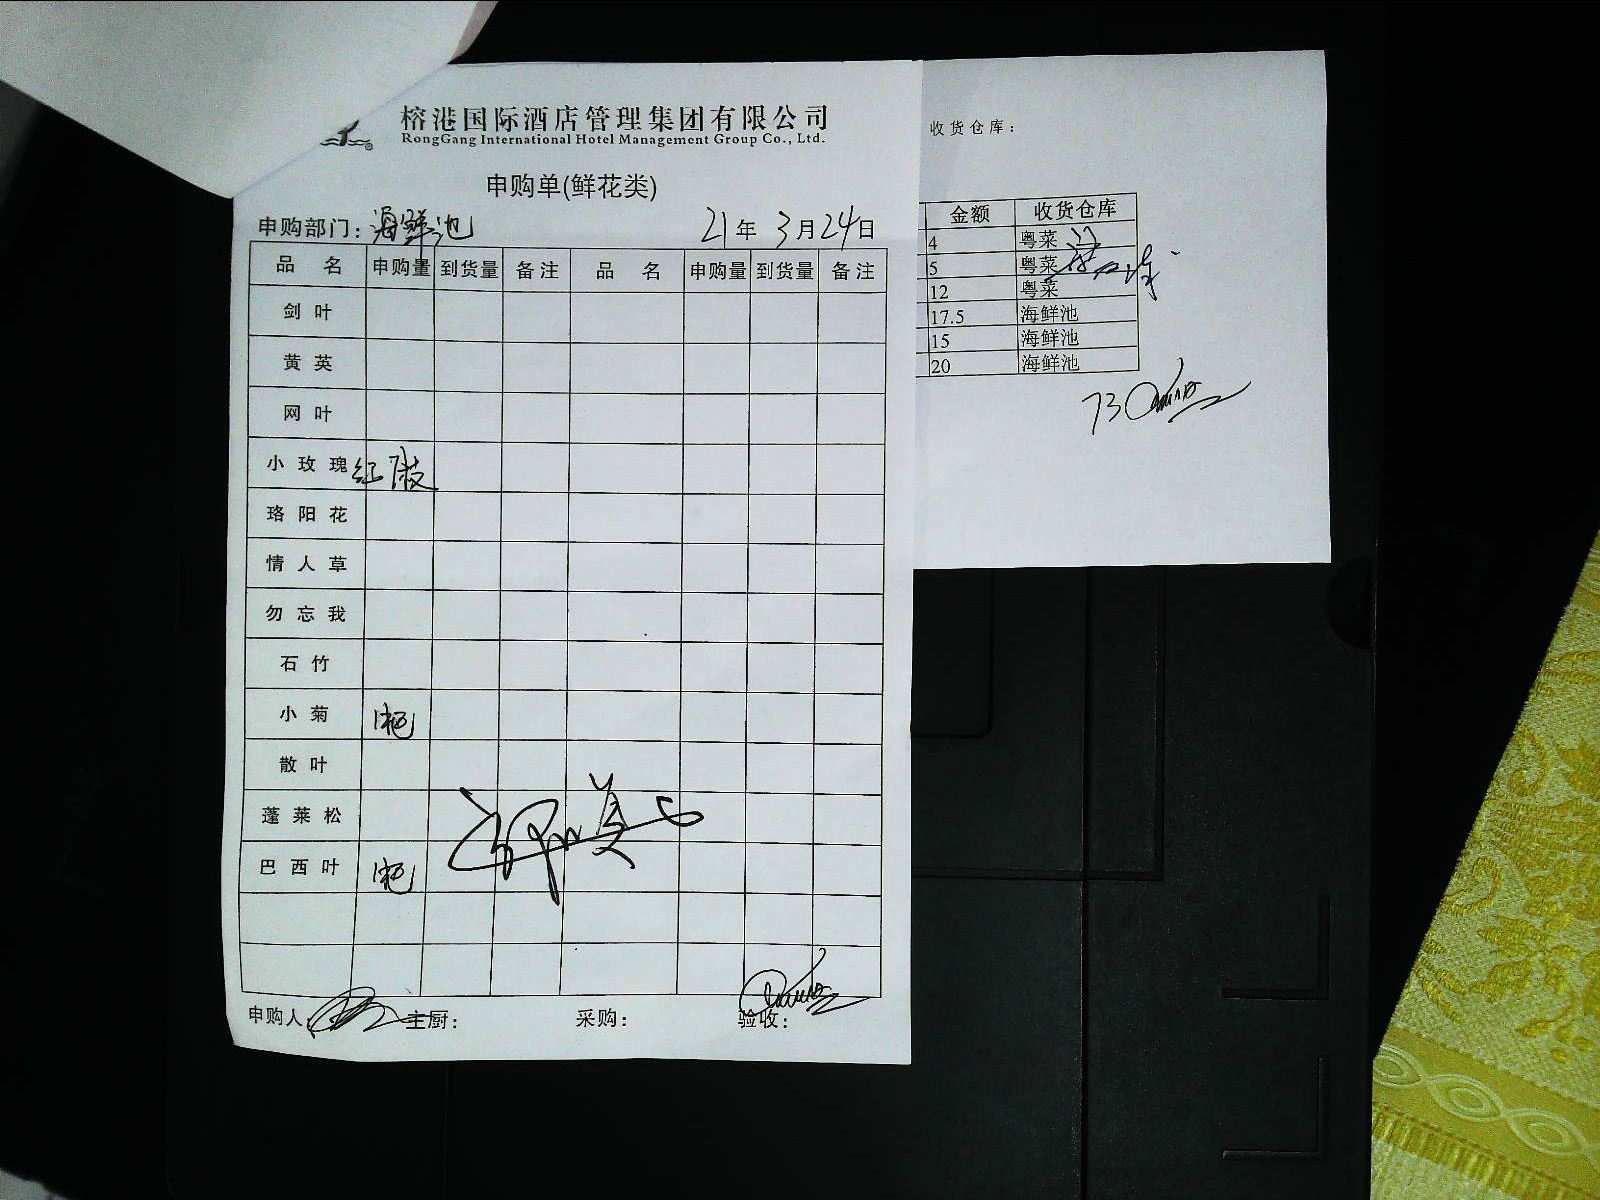 榕港国际酒店管理集团有限公司
RongGang International Hotel Management Group Co., Ltd.
申购单(鲜花类)
申购部门：海鲜池 21年3月24日
品名 申购量 到货量 备注 品名 申购量 到货量 备注
剑叶
黄英
网叶
小玫瑰 红
珞阳花
情人草
勿忘我
石竹
小菊 1把
散叶
蓬莱松
巴西叶 1把
申购人： 主厨： 采购： 验收：
收货仓库：
金额 收货仓库
4 粤菜
5 粤菜
12 粤菜
17.5 海鲜池
15 海鲜池
20 海鲜池
73